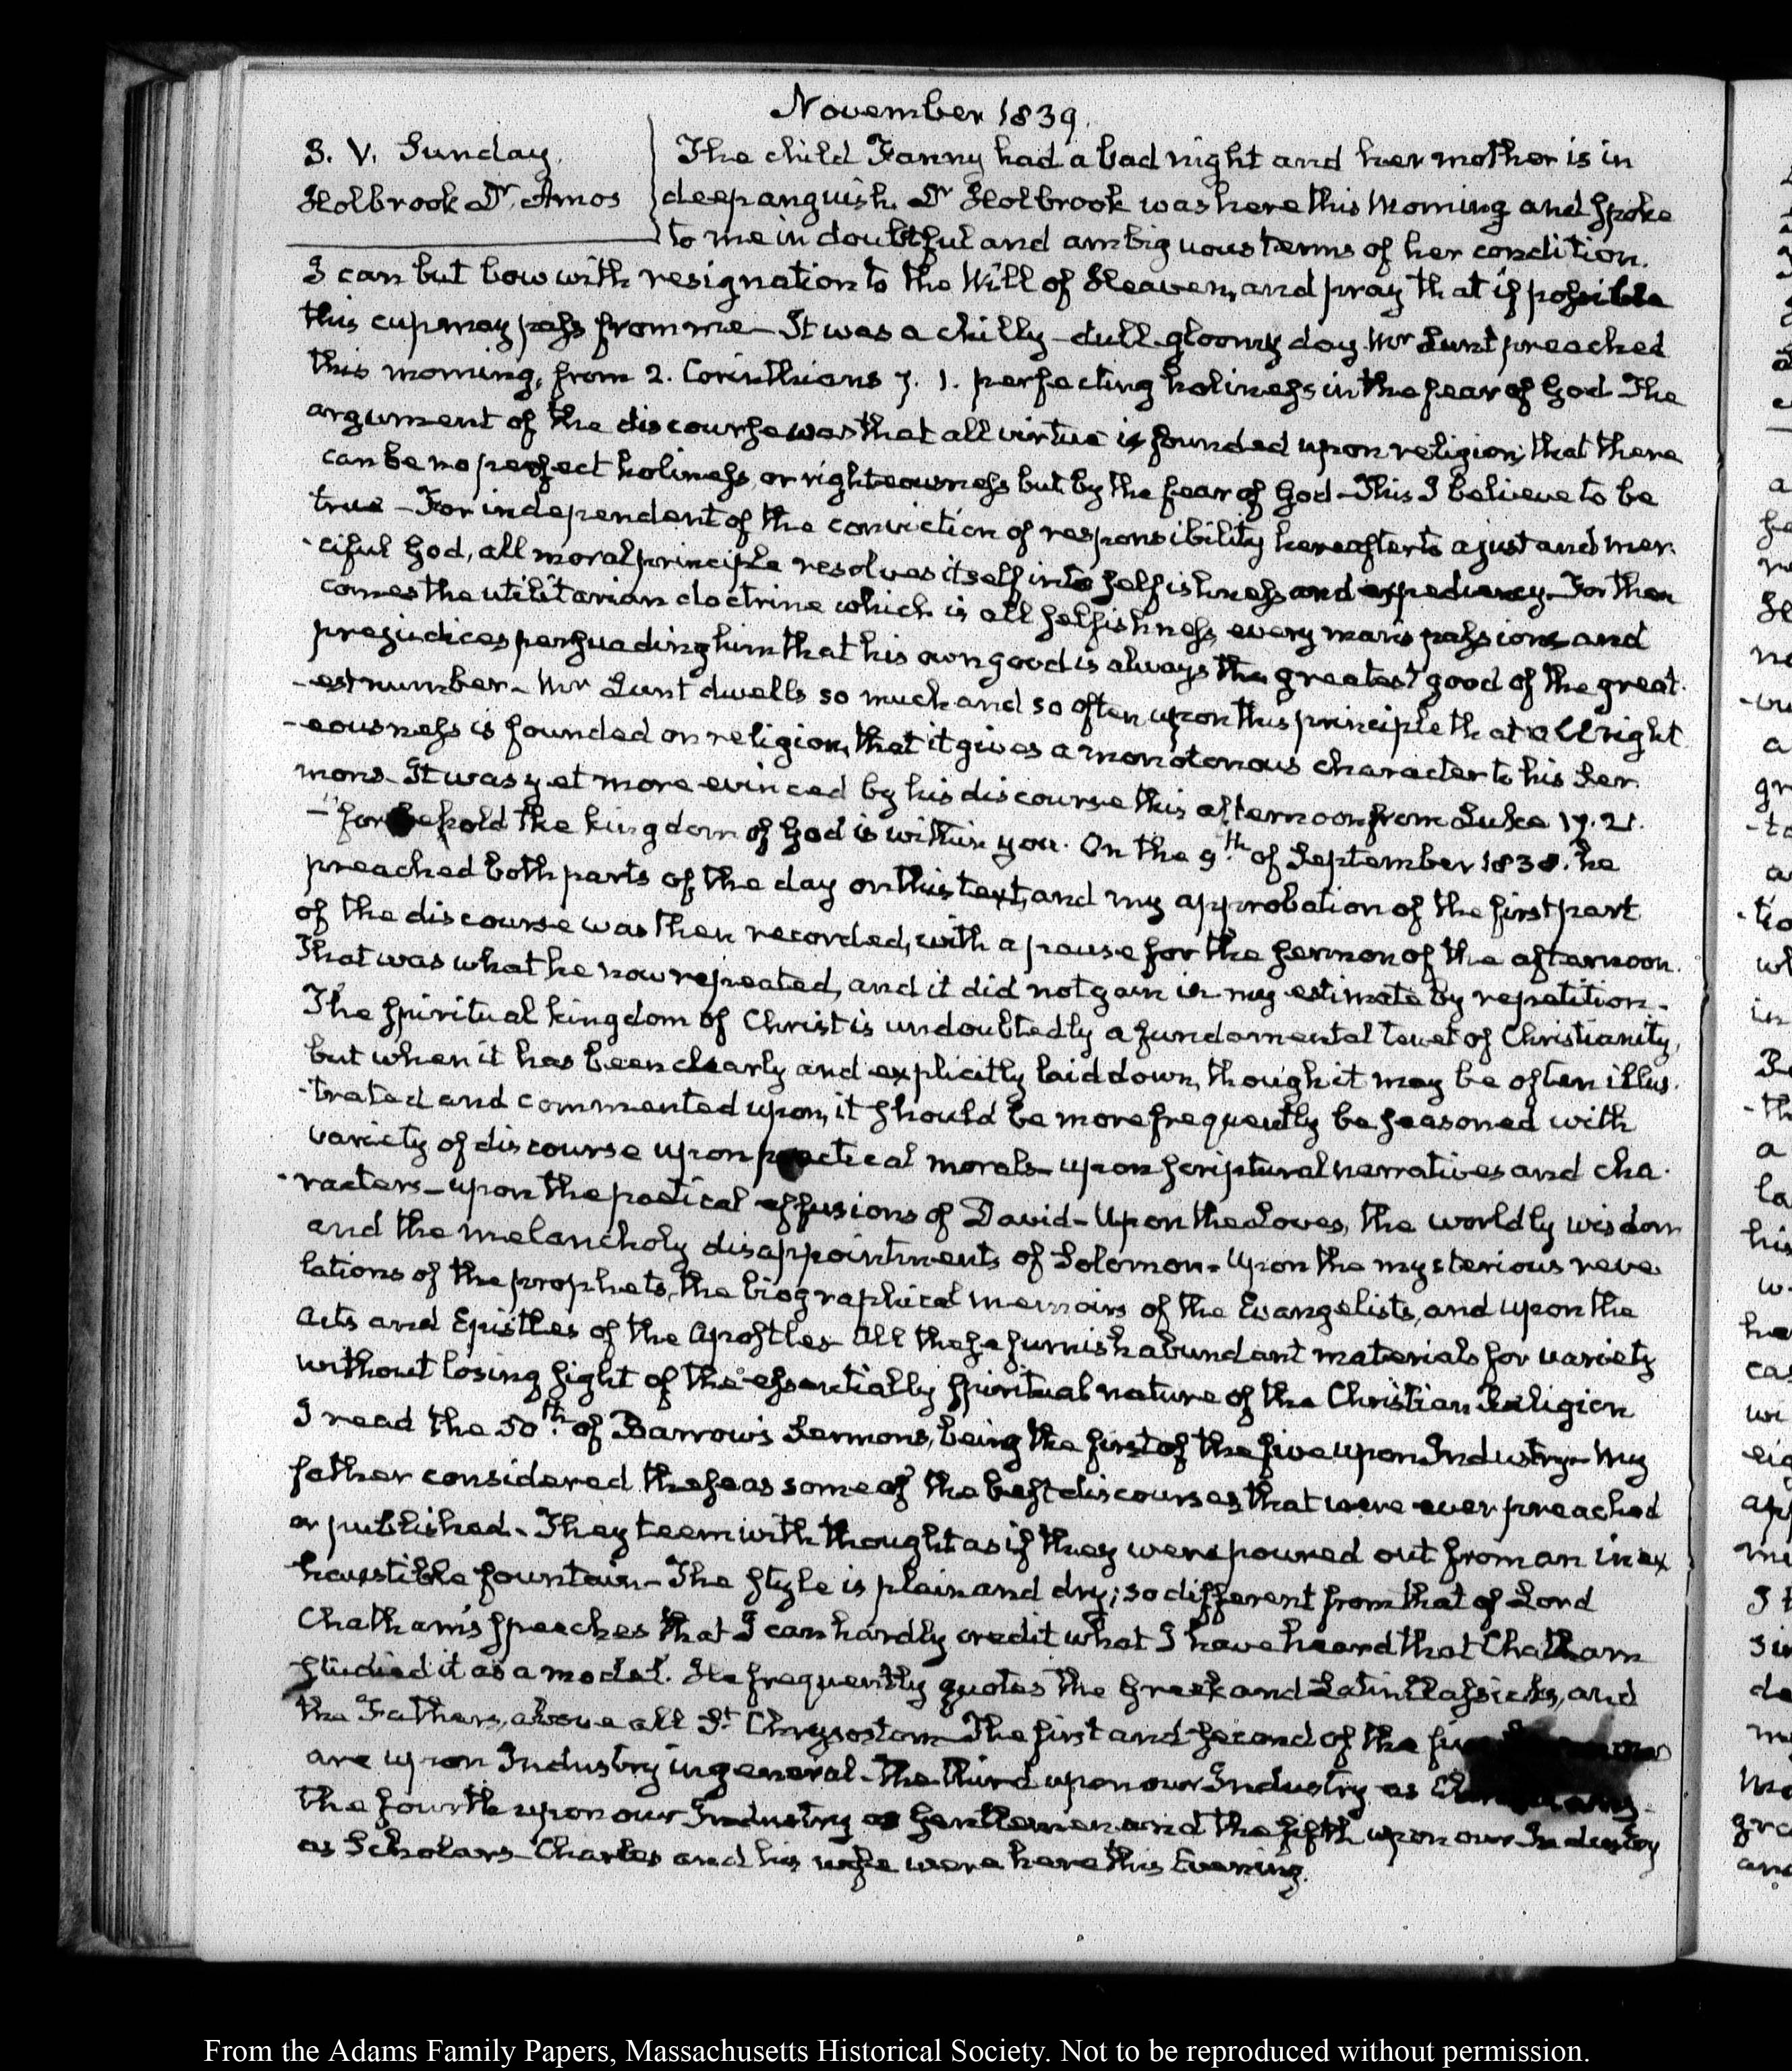 November 1839.
3. V. Sunday.
Holbrook Dr. Amos
The child Fanny had a bad night and her mother is in
deep anguish. Dr Holbrook was here this Morning and spoke
to me in doubtful and ambiguous terms of her condition.
I can but bow with resignation to the Will of Heaven, and pray that if possible
this cup may pass from me— It was a chilly—dull gloomy day Mr Lunt preached
this morning, from 2. Corinthians 7. 1. perfecting holiness in the fear of God. The
argument of the discourse was that all virtue is founded upon religion; that there
can be no perfect holiness, or righteousness but by the fear of God—This I believe to be
true—For independent of the conviction of responsibility hereafter to a just and mer-
-ciful God, all moral principle resolves itself into selfishness and expediency—For then
comes the utilitarian doctrine which is all selfishness, every man's passions and
prejudices persuading him that his own good is always the greatest good of the great-
-est number— Mr Lunt dwells so much and so often upon this principle that all right-
-eousness is founded on religion, that it gives a monotonous character to his Ser-
mons—It was yet more evinced by his discourse this afternoon from Luke 17. 21.
—"for behold the kingdom of God is within you. On the 9th. of September 1838. he
preached both parts of the day on this text, and my approbation of the first part
of the discourse was then recorded, with a pause for the sermon of the afternoon.
That was what he now repeated, and it did not gain in my estimate by repetition—
The spiritual kingdom of Christ is undoubtedly a fundamental tenet of Christianity,
but when it has been clearly and explicitly laid down, though it may be often illus-
-trated and commented upon, it should be more frequently be seasoned with
variety of discourse upon practical morals—upon scriptural narratives and cha-
-racters—upon the poetical effusions of David—Upon the Loves, the worldly wisdom
and the melancholy disappointments of Solomon—Upon the mysterious reve-
lations of the prophets, the biographical memoirs of the Evangelists, and upon the
Acts and Epistles of the Apostles—All these furnish abundant materials for variety
without losing sight of the essentially spiritual nature of the Christian Religion
I read the 50th. of Barrow's Sermons, being the first of the five upon Industry—My
father considered these as some of the best discourses that were ever preached
or published—They teem with thought as if they were poured out from an inex
haustible fountain—The style is plain and dry; so different from that of Lord
Chatham's speeches that I can hardly credit what I have heard that Chatham
studied it as a model. He frequently quotes the Greek and Latin Classicks, and
the Fathers, above all St. Chrysostom—The first and second of the
are upon Industry in general—The third upon our Industry as
the fourth upon our Industry as Gentlemen and the fifth upon our Industry
as Scholars—Charles and his wife were here this Evening.
From the Adams Family Papers, Massachusetts Historical Society. Not to be reproduced without permission.